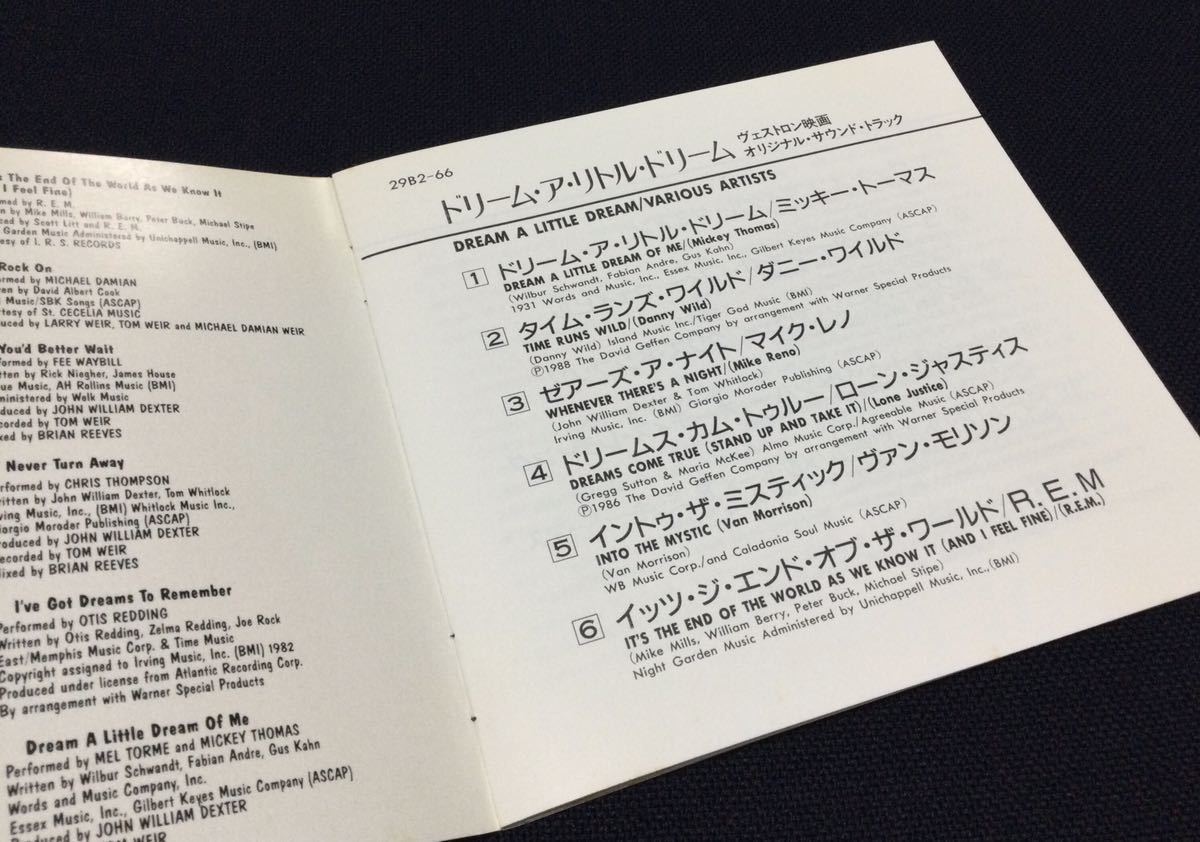 The End Of The World As We Know It
I Feel Fine)
by R. E. M.
by Mike Mills, William Barry, Peter Buck, Michael Stipe
by Scott Litt and R. E. M.
Garden Music Administered by Unichappell Music, Inc., (BMI)
of I. R. S. RECORDS
Rock On
by MICHAEL DAMIAN
by David Albert Cook
Music/SBK Songs (ASCAP)
of St. CECELIA MUSIC
by LARRY WEIR, TOM WEIR and MICHAEL DAMIAN WEIR
You'd Better Wait
by FEE WAYBILL
by Rick Niegher, James House
Music, AH Rollins Music (BMI)
by Welk Music
by JOHN WILLIAM DEXTER
by TOM WEIR
by BRIAN REEVES
Never Turn Away
Performed by CHRIS THOMPSON
by John William Dexter, Tom Whitlock
Music, Inc., (BMI) Whitlock Music Inc.,
Giorgio Moroder Publishing (ASCAP)
Produced by JOHN WILLIAM DEXTER
by TOM WEIR
by BRIAN REEVES
I've Got Dreams To Remember
Performed by OTIS REDDING
Written by Otis Redding, Zelma Redding, Joe Rock
East/Memphis Music Corp. & Time Music
Copyright assigned to Irving Music, Inc. (BMI) 1982
Produced under license from Atlantic Recording Corp.
By arrangement with Warner Special Products
Dream A Little Dream Of Me
Performed by MEL TORME and MICKEY THOMAS
Written by Wilbur Schwandt, Fabian Andre, Gus Kahn
Words and Music Company, Inc.
Essex Music, Inc., Gilbert Keyes Music Company (ASCAP)
Produced by JOHN WILLIAM DEXTER
WEIR
29B2-66
ドリーム・ア・リトル・ドリーム ヴェストロン映画
オリジナル・サウンド・トラック
DREAM A LITTLE DREAM/VARIOUS ARTISTS
1 ドリーム・ア・リトル・ドリーム/ミッキー・トーマス
DREAM A LITTLE DREAM OF ME/(Mickey Thomas)
(Wilbur Schwandt, Fabian Andre, Gus Kahn)
1931 Words and Music, Inc., Essex Music, Inc., Gilbert Keyes Music Company (ASCAP)
2 タイム・ランズ・ワイルド/ダニー・ワイルド
TIME RUNS WILD/(Danny Wild)
(Danny Wild) Island Music Inc./Tiger God Music (BMI)
Ⓟ1988 The David Geffen Company by arrangement with Warner Special Products
3 ゼアーズ・ア・ナイト/マイク・レノ
WHENEVER THERE'S A NIGHT/(Mike Reno)
(John William Dexter & Tom Whitlock)
Irving Music, Inc. (BMI) Giorgio Moroder Publishing (ASCAP)
4 ドリームス・カム・トゥルー/ローン・ジャスティス
DREAMS COME TRUE (STAND UP AND TAKE IT)/(Lone Justice)
(Gregg Sutton & Maria McKee) Almo Music Corp./Agreeable Music (ASCAP)
Ⓟ1986 The David Geffen Company by arrangement with Warner Special Products
5 イントゥ・ザ・ミスティック/ヴァン・モリソン
INTO THE MYSTIC (Van Morrison)
(Van Morrison)
WB Music Corp./and Caladonia Soul Music (ASCAP)
6 イッツ・ジ・エンド・オブ・ザ・ワールド/R.E.M
IT'S THE END OF THE WORLD AS WE KNOW IT (AND I FEEL FINE)/(R.E.M.)
(Mike Mills, William Berry, Peter Buck, Michael Stipe)
Night Garden Music Administered by Unichappell Music, Inc.,(BMI)